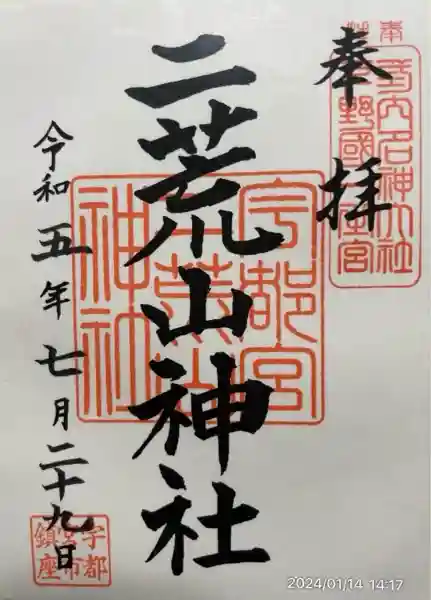 奉拝
式内名神大社
下野國一之宮
二荒山神社
宇都宮
二荒山
神社
令和五年七月二十九日
宇都
宮市
鎮座
2024/01/14 14:17